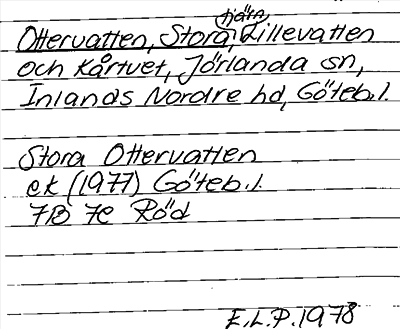 tjärn
Ottervatten, Stora, Lillevatten
och Kårtvet, Jörlanda sn,
Inlands Nordre hd, Göteb.l.
Stora Ottervatten
ek (1977) Göteb.l.
7B 7c Röd
E.L.P. 1978